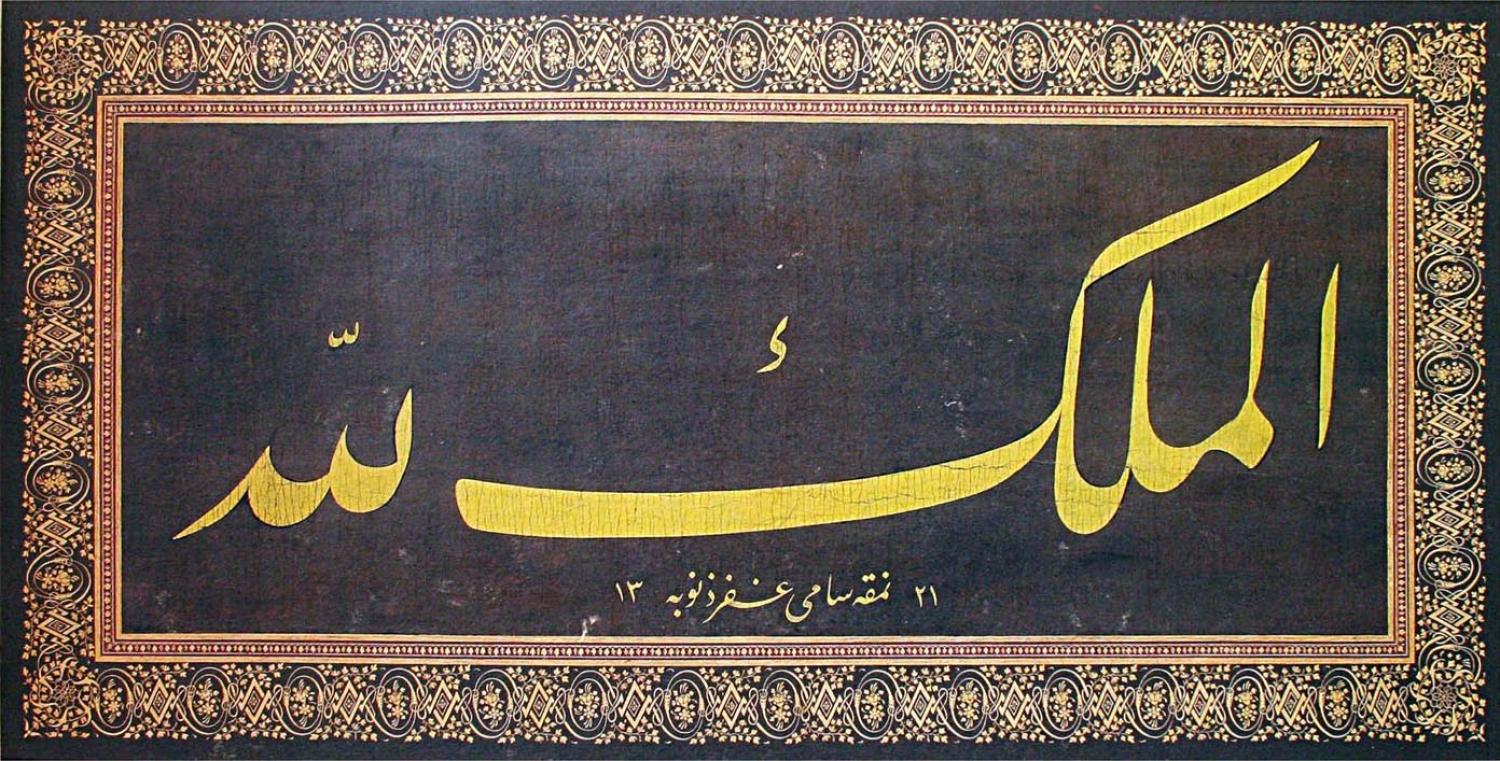 الملك لله
٢١ نمقه سامي غفر ذنوبه ١٣